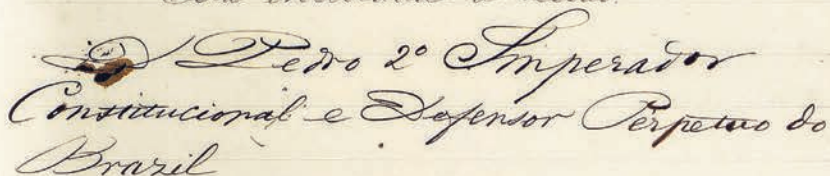 D Pedro 2º Imperador
Constitucional e Defensor Perpetuo do
Brazil